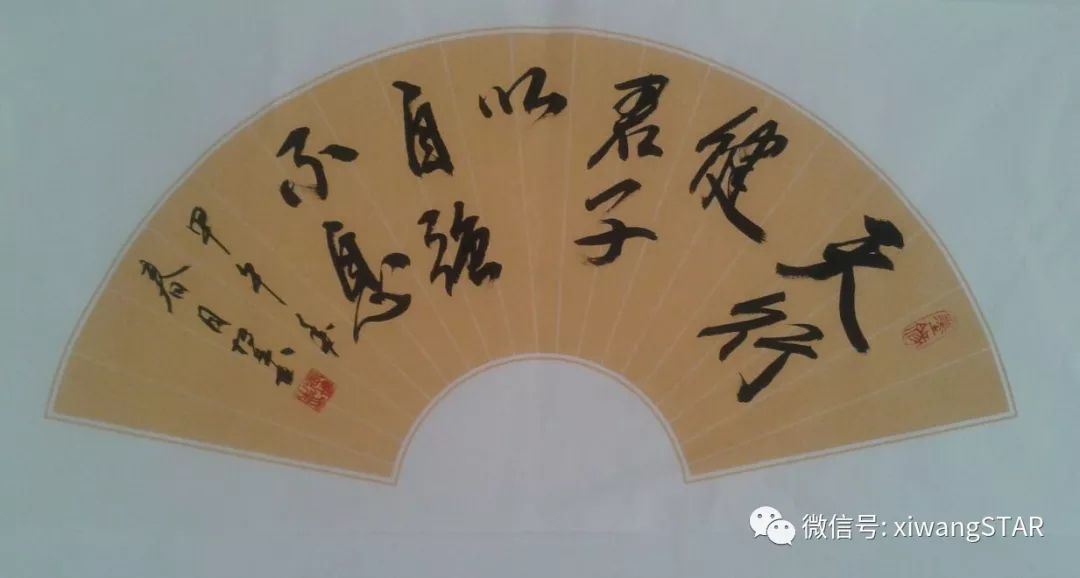 天行
健
君子
以
自強
不息
甲午年
春月
微信号: xiwangSTAR